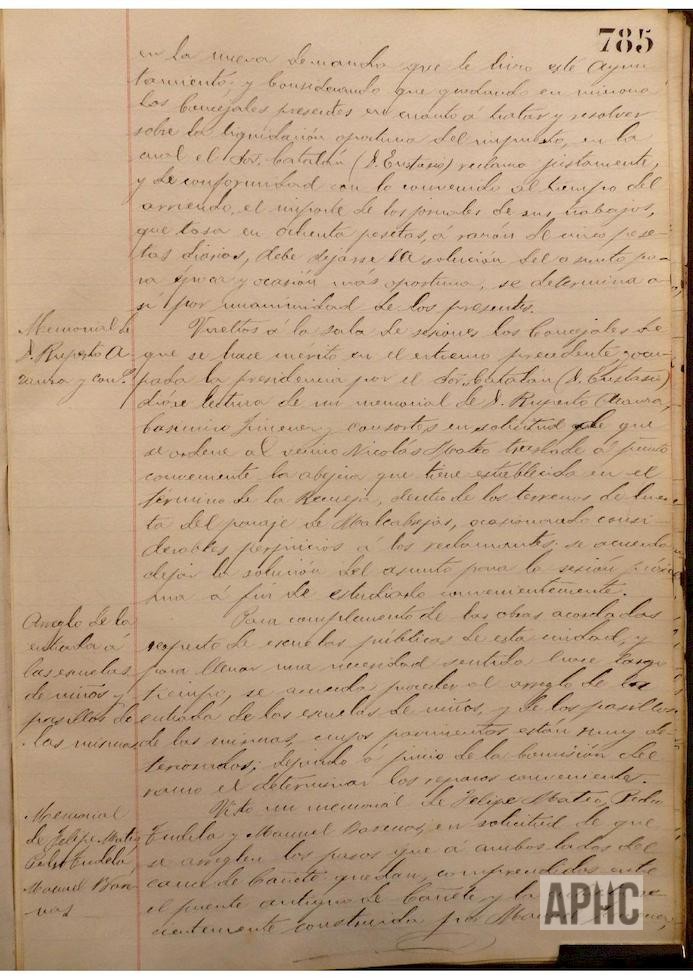 785
en la nueva demanda que le hizo este Ayun
tamiento; y Considerando que quedando en minoria
los Concejales presentes en cuanto á tratar y resolver
sobre la liquidación oportuna del impuesto, en la
cual el Sor. Catalán (D. Eustasio) reclama justamente,
y de conformidad con lo convenido al tiempo del
arriendo, el importe de los jornales de sus trabajos,
que tasa en ochenta pesetas, á razón de cinco pese-
tas diarias, debe dejarse la solución del asunto pa-
ra época y ocasión más oportuna, se determina a-
sí por unanimidad de los presentes.
Memorial de
D. Ruperto A-
zaura y conp.
Vueltos á la sala de sesiones los Concejales de
que se hace mérito en el extremo precedente, y ocu-
pada la presidencia por el Sor. Catalán (D. Eustasio)
dióse lectura de un memorial de D. Ruperto
Casimiro Jimenez y consortes en solicitud de que
se ordene al vecino Nicolás Mateo traslade al punto
conveniente la abejera que tiene establecida en el
término de la Recueja, dentro de los terrenos de huer-
ta del paraje de Malcabejas, ocasionando consi-
derables perjuicios á los reclamantes; se acuerda
dejar la solución del asunto para la sesión próxi
ma á fin de estudiarlo convenientemente.
Arreglo de la
entrada á
las escuelas
de niños y
pasillos de
las mismas
Para complemento de las obras acordadas
respecto de escuelas públicas de esta ciudad, y
para llenar una necesidad sentida hace largo
tiempo, se acuerda proceder al arreglo de la
entrada de las escuelas de niños, y de los pasillos
de las mismas, cuyos pavimentos están muy de-
teriorados; dejando á juicio de la Comisión del
ramo el determinar los reparos convenientes.
Memorial
de Felipe Mateo
Pedro Tudela
Manuel
Visto un memorial de Felipe Mateo, Pedro
Tudela y Manuel en solicitud de que
se arreglen los pasos que á ambos lados del
cauce de Cañete quedan, comprendidos entre
el puente antiguo de Cañete y la
cientemente construida por Manuel
APHC